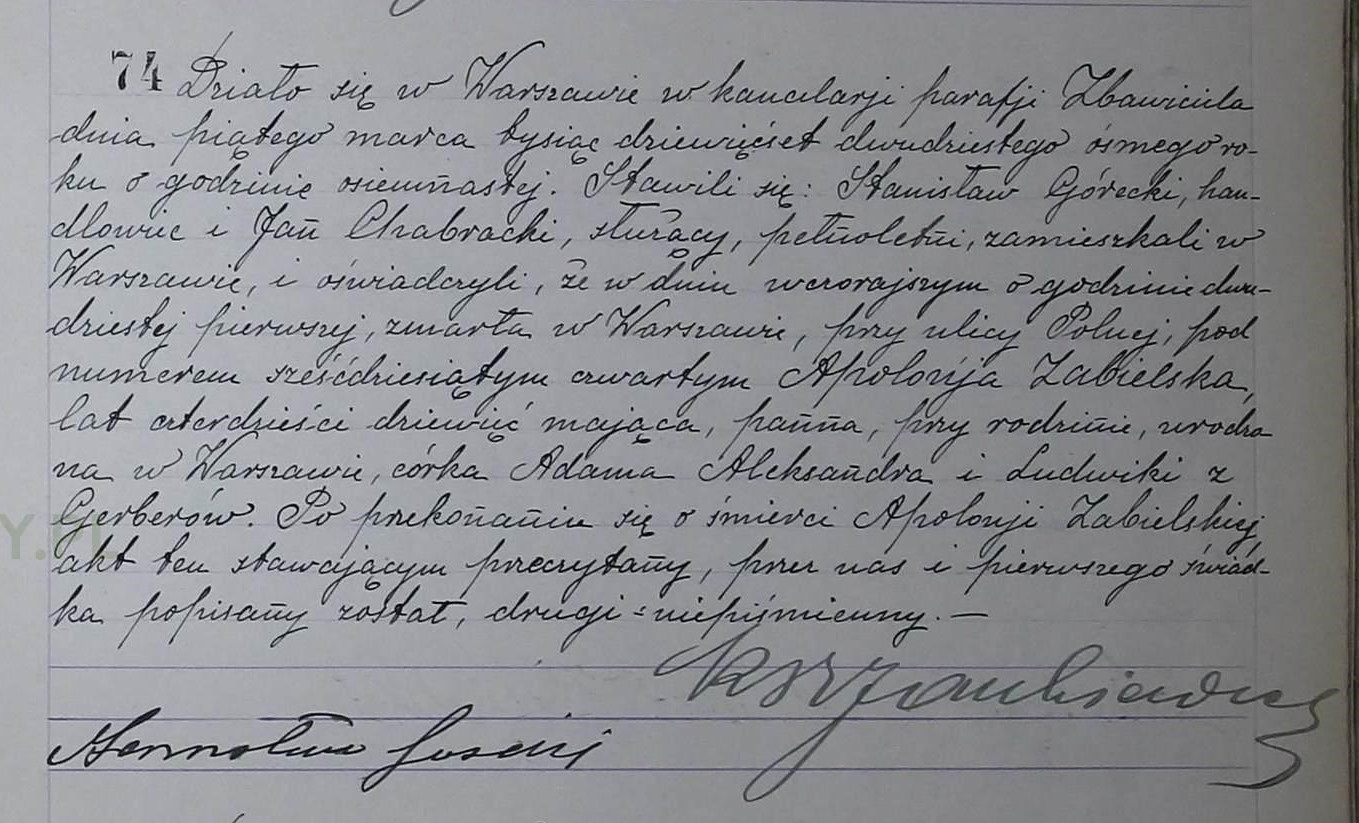 74 Działo się w Warszawie w kancelarji parafji Zbawiciela
dnia piątego marca tysiąc dziewięćset dwudziestego ósmego ro-
ku o godzinie osiemnastej. Stawili się: Stanisław Górecki, han-
dlowiec i Jan Chabracki, służący, pełnoletni, zamieszkali w
Warszawie, i oświadczyli, że w dniu wczorajszym o godzinie dwu-
dziestej pierwszej, zmarła w Warszawie, przy ulicy Polnej, pod
numerem sześćdziesiątym czwartym Apolonja Zabielska,
lat czterdzieści dziewięć mająca, panna, przy rodzinie, urodzo
na w Warszawie, córka Adama Aleksandra i Ludwiki z
Gerberów. Po przekonaniu się o śmierci Apolonji Zabielskiej
akt ten stawającym przeczytany, przez nas i pierwszego świad-
ka popisany został, drugi - niepiśmienny. —
Y.PL